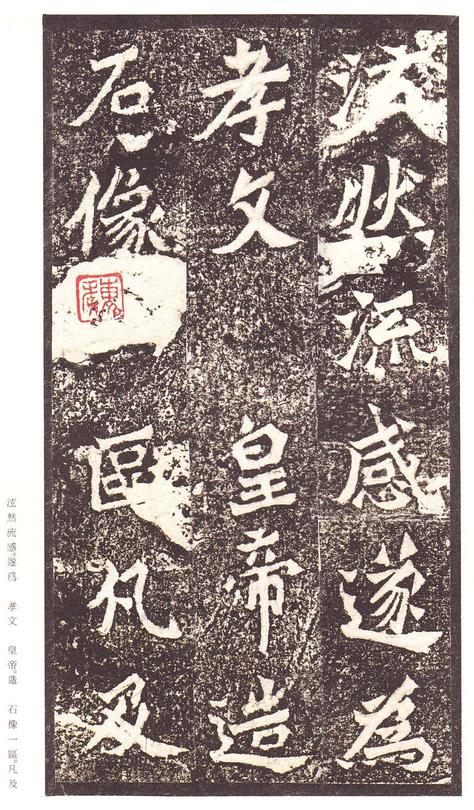 泫然流感遂為
孝文 皇帝造
石像 區凡及
泫然流感。遂爲 孝文 皇帝。造 石像一區。凡及